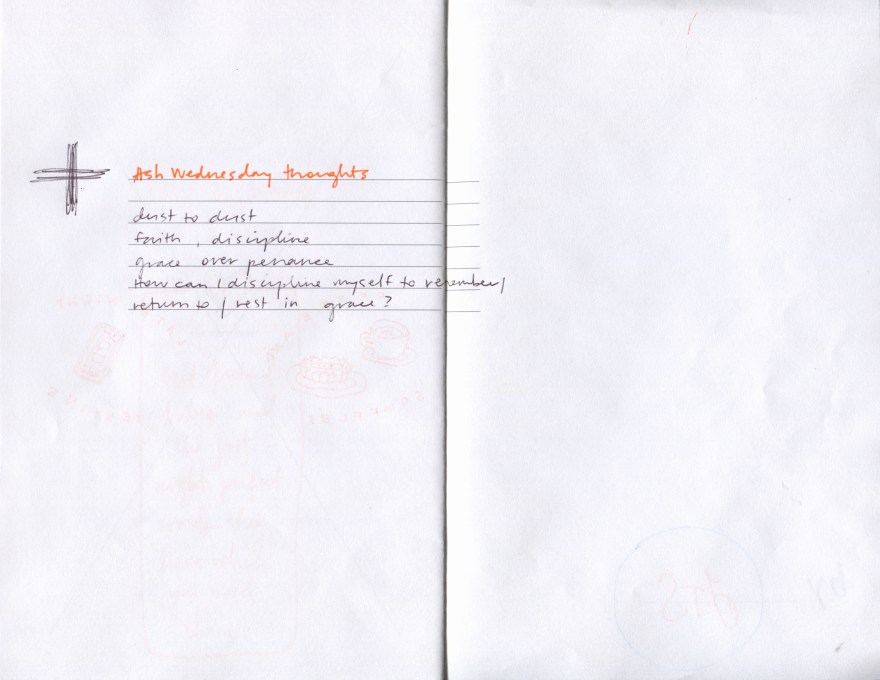 Ash Wednesday thoughts
dust to dust
faith, discipline
grace over penance
How can I discipline myself to remember /
return to / rest in grace?